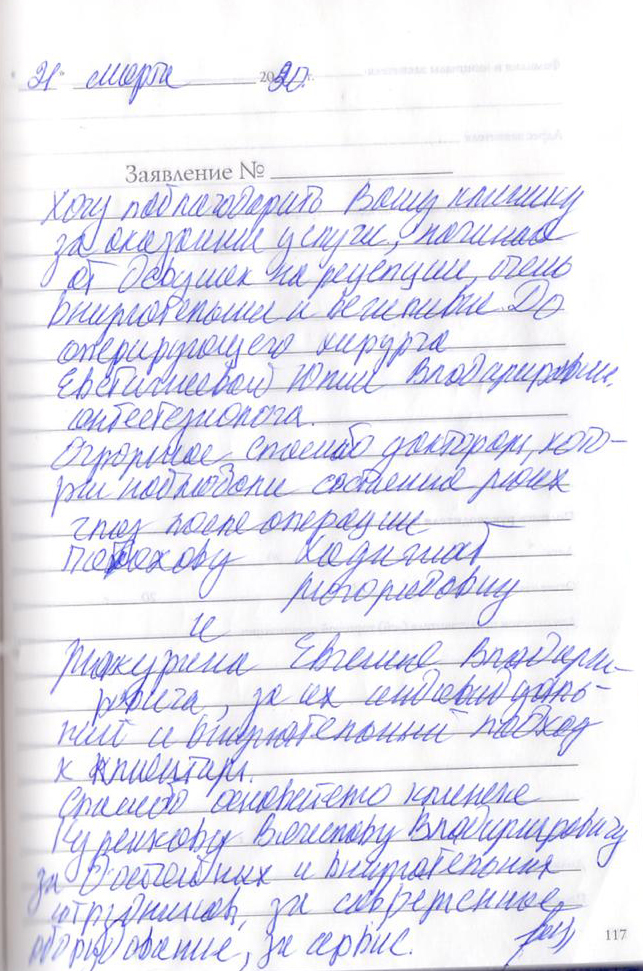 "21" марта 2020 г.
Заявление №
Хочу поблагодарить Вашу клинику
за оказание услуги, начиная
от девушек на рецепции, очень
внимательные и вежливые. До
оперирующего хирурга
Евстигнеевой Юлии Владимировны,
анестезиолога.
Огромное спасибо докторам, кото-
рые наблюдали состояние моих
глаз после операции
Хадижат
Магомедовну
и
Евгения Владими-
ровича, за их индивидуаль-
ный и внимательный подход
к клиентам.
Спасибо основателю клиники
Куренкову Вячеславу Владимировичу
за достойных и внимательных
сотрудников, за современное
оборудование, за сервис.
117